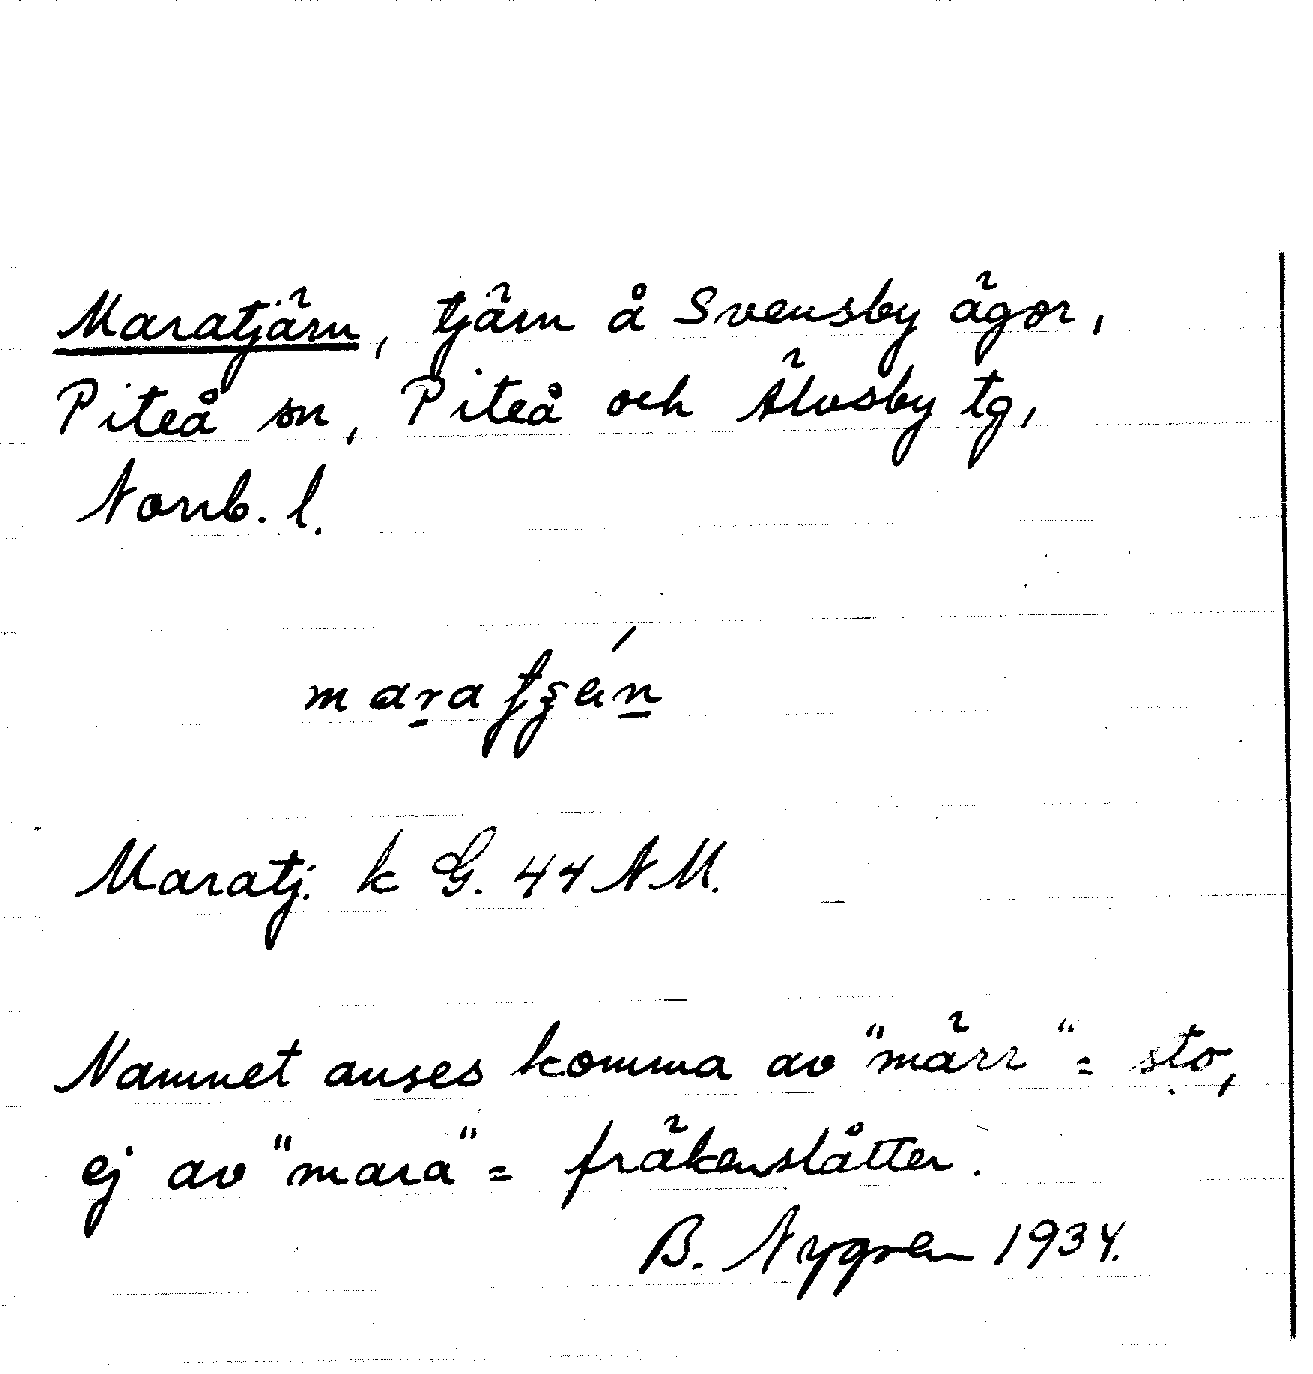 Maratjärn, tjärn å Svensby ägor,
Piteå sn, Piteå och Älvsby tg,
Norrb. l.
Maratj. k G. 44 NM.
Namnet anses komma av "märr" = sto,
ej av "mara" = fräkenslåtter.
B. Nygren 1934.